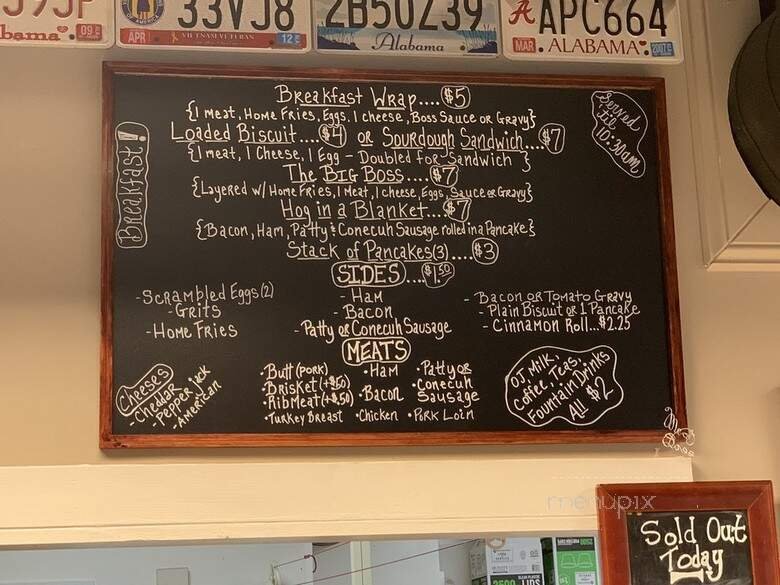 bama. 09
33VJ8
APR VIETNAM VETERAN 12
2B50Z39
Alabama
APC664
MAR ALABAMA
Breakfast!
Served
til
10:30am
Breakfast Wrap....$5
{1 meat, Home Fries, Eggs, 1 cheese, Boss Sauce or Gravy}
Loaded Biscuit....$4 or Sourdough Sandwich....$7
{1 meat, 1 Cheese, 1 Egg - Doubled for Sandwich}
The BIG BOSS....$7
{Layered w/ Home Fries, 1 Meat, 1 cheese, Eggs, Sauce or Gravy}
Hog in a Blanket...$7
{Bacon, Ham, Patty & Conecuh Sausage rolled in a Pancake}
Stack of Pancakes(3)....$3
SIDES...$1.50
- Scrambled Eggs (2)
- Grits
- Home Fries
- Ham
- Bacon
- Patty or Conecuh Sausage
- Bacon or Tomato Gravy
- Plain Biscuit or 1 Pancake
- Cinnamon Roll...$2.25
MEATS
Cheeses
- Cheddar
- Pepper jack
- American
• Butt (PORK)
• Brisket (+$.50)
• Rib Meat (+$.50)
• Turkey Breast
• Ham
• Bacon
• Chicken
• Patty or
• Conecuh
Sausage
• Pork Loin
OJ, Milk,
Coffee, Teas,
Fountain Drinks
All $2
menupix
Sold Out
Today